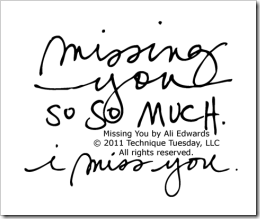 missing
you
so so MUCH.
Missing You by Ali Edwards
© 2011 Technique Tuesday, LLC
All rights reserved.
i miss you.